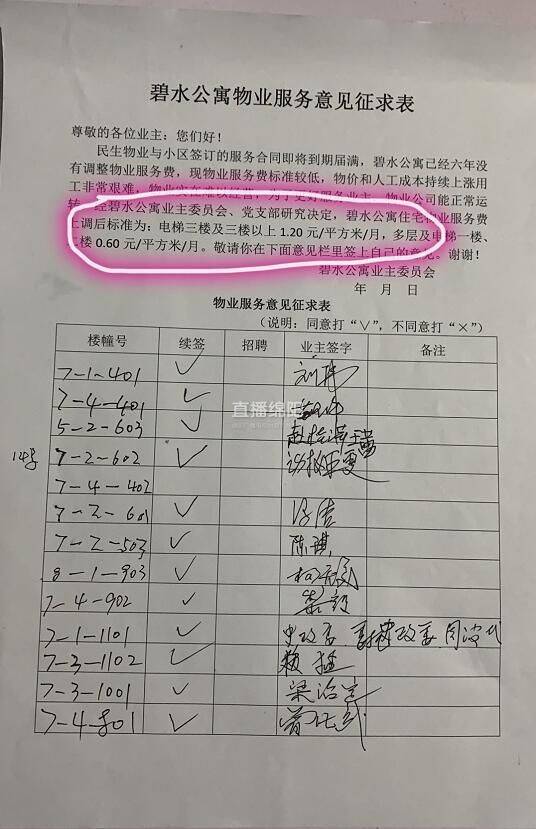 碧水公寓物业服务意见征求表
尊敬的各位业主：您们好！
民生物业与小区签订的服务合同即将到期届满，碧水公寓已经六年没
有调整物业服务费，现物业服务费标准较低，物价和人工成本持续上涨用
工非常艰难，物业实在难以经营，为了更好服务业主，物业公司能正常运
转，经碧水公寓业主委员会、党支部研究决定，碧水公寓住宅物业服务费
上调后标准为：电梯三楼及三楼以上 1.20 元/平方米/月，多层及电梯一楼、
二楼 0.60 元/平方米/月。敬请你在下面意见栏里签上自己的意见。谢谢！
碧水公寓业主委员会
年 月 日
物业服务意见征求表
（说明：同意打“∨”，不同意打“×”）
楼幢号 续签 招聘 业主签字 备注
7-1-401 ✓
7-4-401 ✓
5-2-603 ✓
7-2-602 ✓
7-4-402
7-2-601 ✓
7-2-503 ✓ 陈琪
8-1-903 ✓
7-4-902 ✓
7-1-1101 ✓
7-3-1102 ✓
7-3-1001 ✓ 梁治兰
7-4-801 ✓
直播绵阳